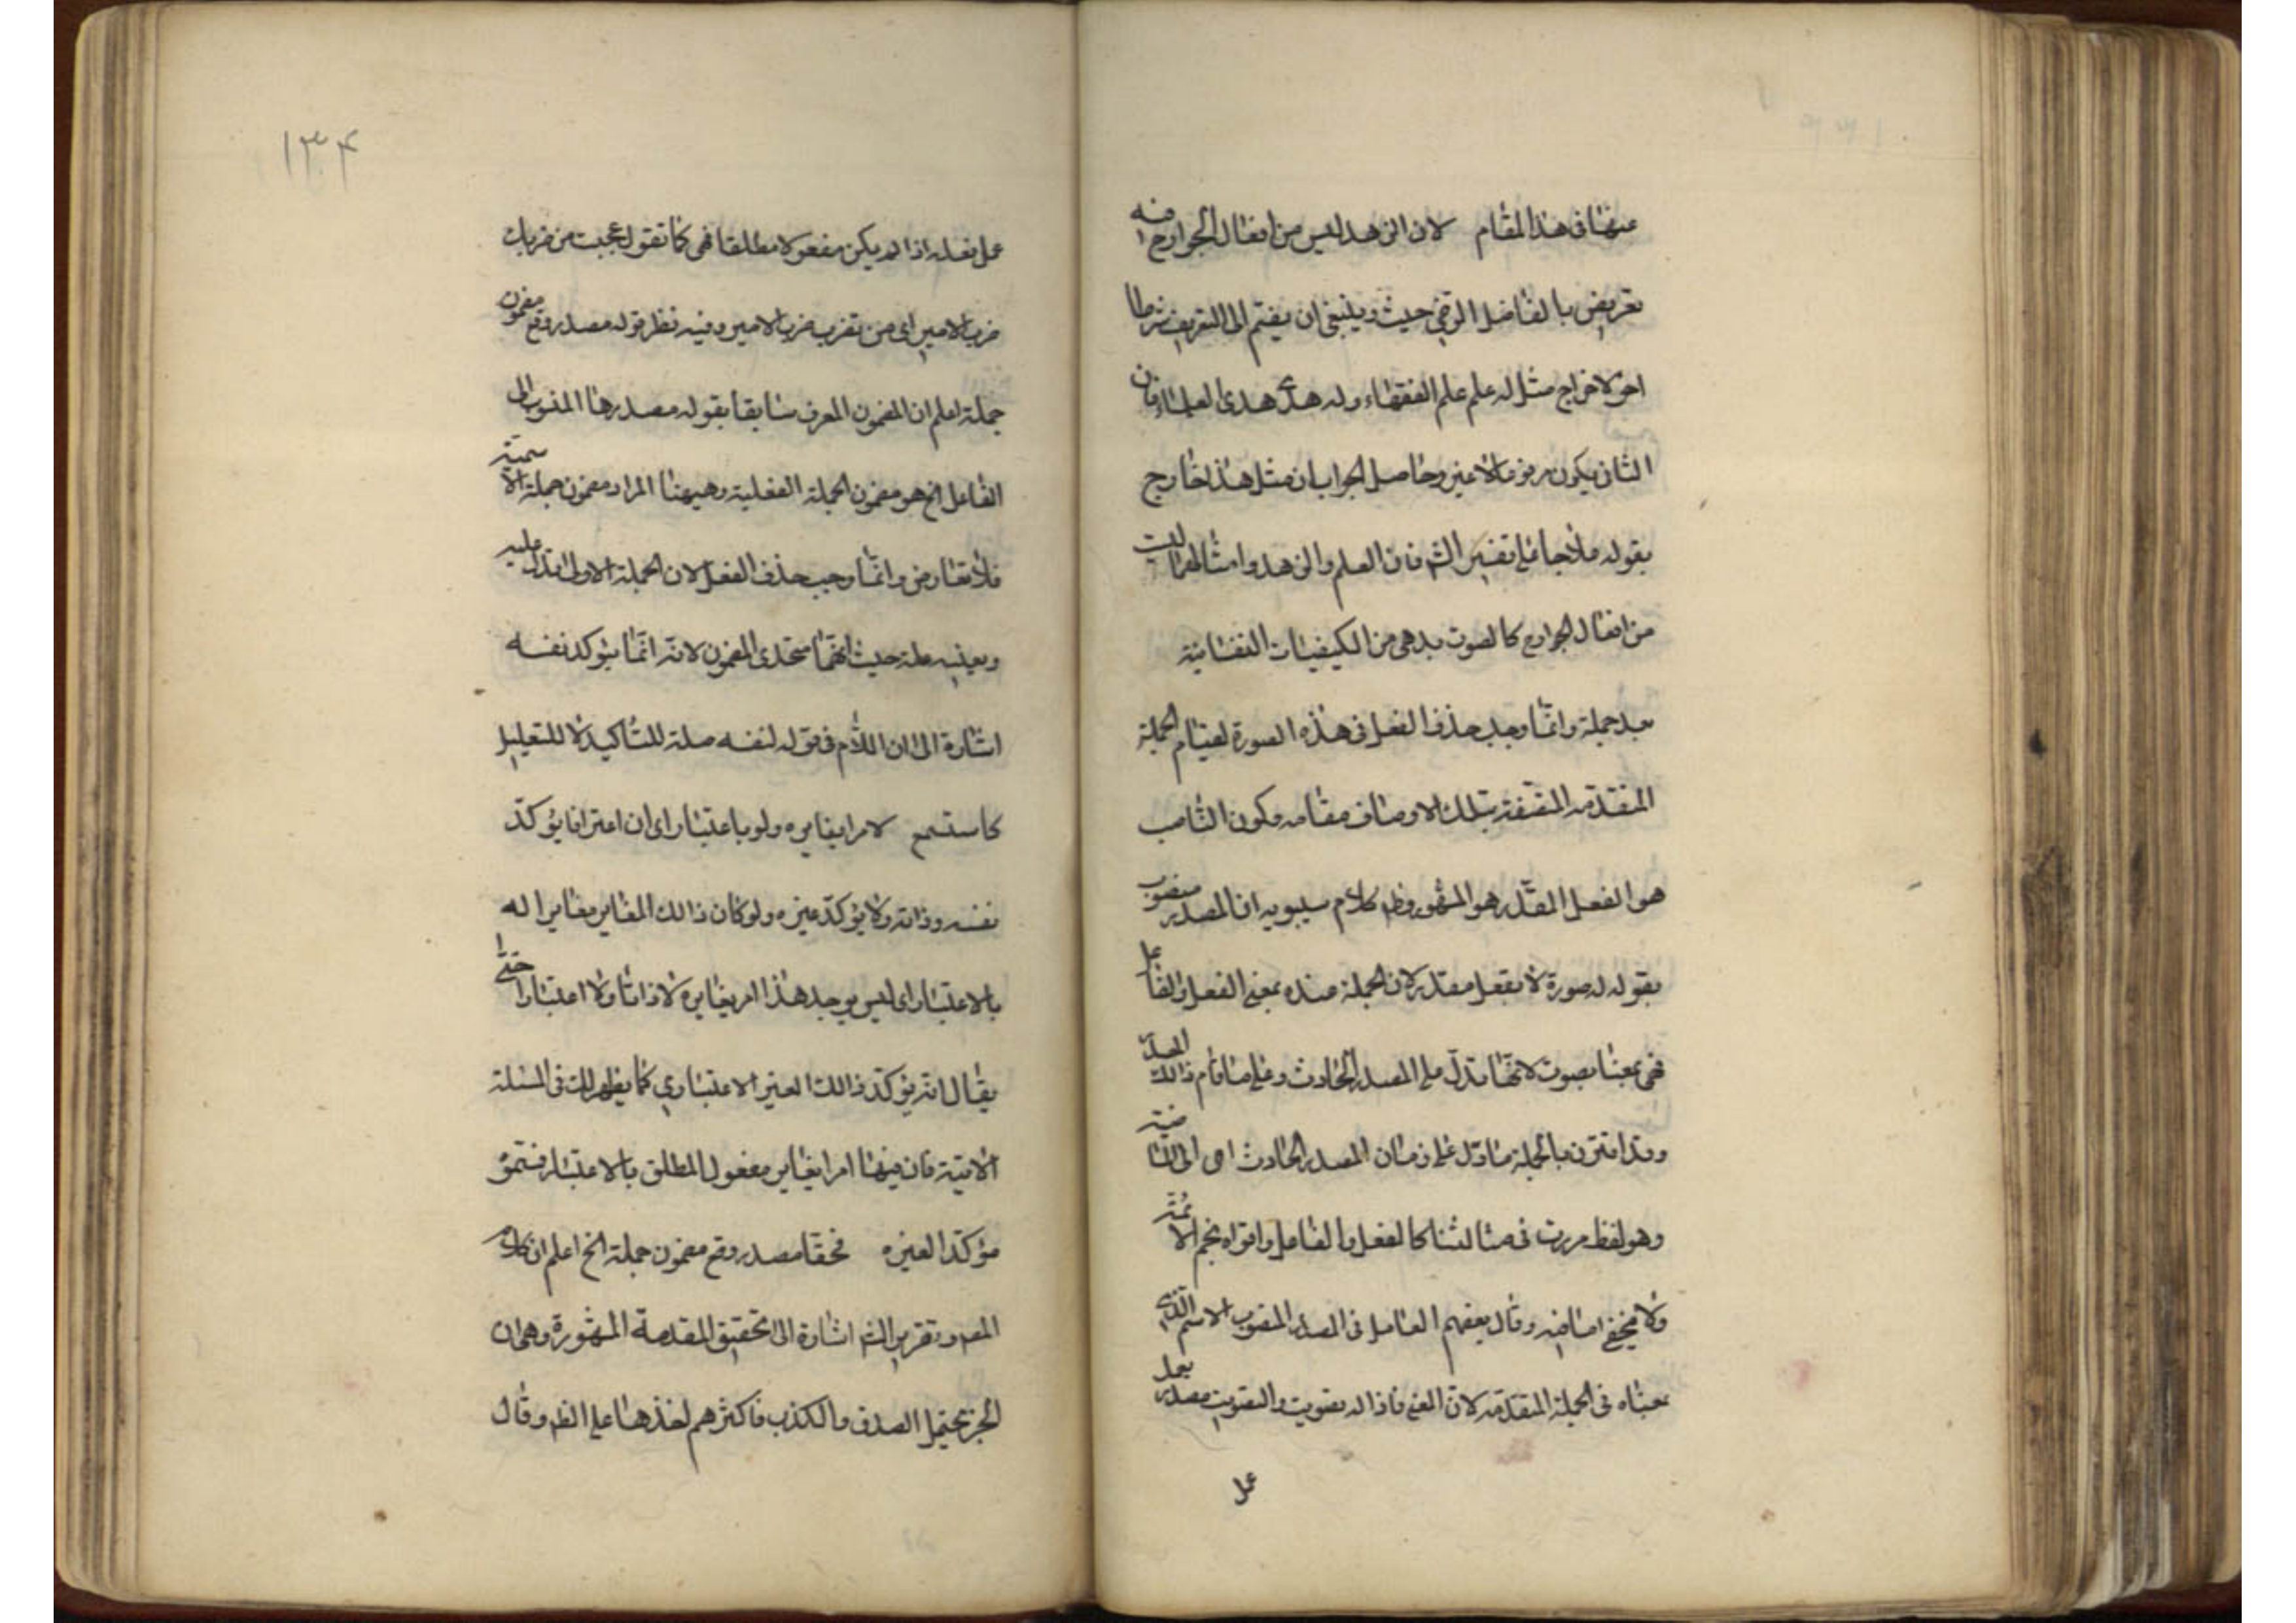 عنها فى هذا المقام لان الزهد ليس من افعال الجوارح فيه
تعريض بالفاضل الرضى حيث وينبغى ان يضم الى التعريف شرطا
اخر لاخراج مثل له علم علم الفقهاء وله هدى هدى العلماء فان
الثانى يكون مرفوعا لا غير وحاصل الجواب ان مثل هذا خارج
بقوله علاجا على تفسير الش فان العلم والزهد وامثالهما ليست
من افعال الجوارح كالصوت بل هى من الكيفيات النفسانية
بعد جملة وانما وجب حذف الفعل فى هذه الصورة لقيام الجملة
المتقدمه المتصفة بتلك الاوصاف مقامه وكون الناصب
هو الفعل المقدر هو المشهور وظ كلام سيبويه ان المصدر منصوب
بقوله له صورة لا بفعل مقدر لان الجملة عنده بمعنى الفعل والفاعل
فهى بمعنا يصوت لانها تدل على المصدر الحادث وعلى ما قام ذالك المصدر
وقد اقترن بالجملة ما دل على زمان المصدر الحادث اى الماضية
وهو لفظ مررت فى مثالنا كالفعل والفاعل وقواه نجم الائمة
ولا يخفى ما فيه وقال بعضهم العامل فى المصدر المنصوب الاسم الذى
بمعناه فى الجملة المتقدمه لان المعنى فاذا له تصويت والتصويت مصدر يعمل
عمل
١٣۴
عمل فعله اذا لم يكن مفعولا مطلقا فهى كما تقول عجبت من ضربك
ضرب الامير اى من تضرب ضرب الامير وفيه نظر قوله مصدر وقع مضمون
جملة اعلم ان المضمون المعرف سابقا بقوله مصدرها المنسوب الى
الفاعل الخ هو مضمون الجملة الفعلية وهيهنا المراد مضمون جملة الاسمية
فلا تعارض وانما وجب حذف الفعل لان الجملة الاولى تدل عليه
حيث انهما متحدى المضمون لانه انما يؤكد نفسه
اشارة الى ان اللام فى قوله لنفسه صلة للتأكيد لا للتعليل
كما ستسمع لامر ايغايره ولو باعتبار اى ان اعترافا يؤكد
نفسه وذاته ولا يؤكد غيره ولو كان ذالك المغاير مغايرا له
بالاعتبار اى ليس يوجد هذا امر يغايره لا ذاتا ولا اعتبارا حتى
يقال انه يؤكد ذالك الغير الاعتبارى كما يظهر لك فى المسئلة
الاتية فان فيها امر ايغاير مفعول المطلق بالاعتبار فسموه
مؤكدا لغيره فحقا مصدر وقع مضمون جملة الخ اعلم ان كلام
المص وتقرير الش اشارة الى تحقيق المقدمة المشهورة وهى ان
الخبر يحتمل الصدق والكذب فاكثرهم اخذها على الظ وقال